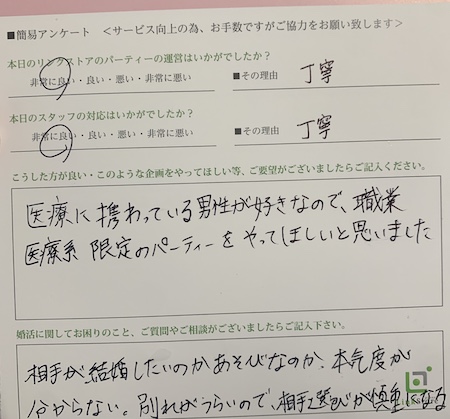 ■簡易アンケート　＜サービス向上の為、お手数ですがご協力をお願い致します＞
本日のリンクストアのパーティーの運営はいかがでしたか？
非常に良い・良い・悪い・非常に悪い　■その理由　丁寧
本日のスタッフの対応はいかがでしたか？
非常に良い・良い・悪い・非常に悪い　■その理由　丁寧
こうした方が良い・このような企画をやってほしい等、ご要望がございましたらご記入ください。
医療に携わっている男性が好きなので、職業
医療系 限定のパーティーをやってほしいと思いました
婚活に関してお困りのこと、ご質問やご相談がございましたらご記入下さい。
相手が結婚したいのかあそびなのか、本気度が
分からない。別れがつらいので、相手選びが慎重になる